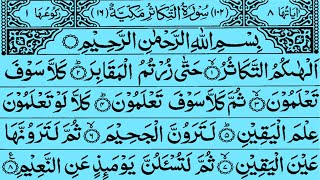 اٰيَاتُهَا ٨ (١٠٢) سُوْرَةُ التَّكَاثُرِ مَكِّيَّةٌ (١٦) رُكُوْعُهَا ١
بِسْمِ اللّٰهِ الرَّحْمٰنِ الرَّحِيْمِ
اَلْهٰىكُمُ التَّكَاثُرُ ۙ﴿١﴾ حَتّٰى زُرْتُمُ الْمَقَابِرَ ؕ﴿٢﴾ كَلَّا سَوْفَ
تَعْلَمُوْنَ ۙ﴿٣﴾ ثُمَّ كَلَّا سَوْفَ تَعْلَمُوْنَ ؕ﴿٤﴾ كَلَّا لَوْ تَعْلَمُوْنَ
عِلْمَ الْيَقِيْنِ ؕ﴿٥﴾ لَتَرَوُنَّ الْجَحِيْمَ ۙ﴿٦﴾ ثُمَّ لَتَرَوُنَّهَا
عَيْنَ الْيَقِيْنِ ۙ﴿٧﴾ ثُمَّ لَتُسْـَٔلُنَّ يَوْمَئِذٍ عَنِ النَّعِيْمِ ﴿٨﴾